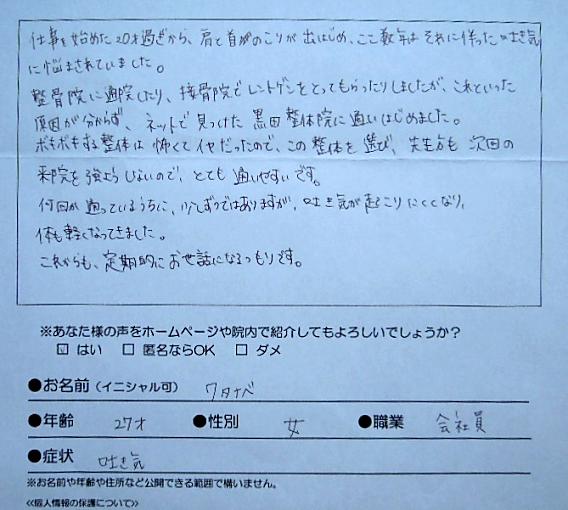 仕事を始めた20才過ぎから、肩と首のこりが出はじめ、ここ数年はそれに伴った吐き気
に悩まされていました。
整骨院に通院したり、接骨院でレントゲンをとってもらったりしましたが、これといった
原因が分からず、ネットで見つけた黒田整体院に通いはじめました。
ボキボキする整体は怖くてイヤだったので、この整体を選び、先生方も次回の
来院を強ようしないので、とても通いやすいです。
何回か通っているうちに、少しずつではありますが、吐き気が起こりにくくなり、
体も軽くなってきました。
これからも、定期的にお世話になるつもりです。
※あなた様の声をホームページや院内で紹介してもよろしいでしょうか?
☑ はい □ 匿名ならOK □ ダメ
●お名前(イニシャル可) ワタナベ
●年齢 27才 ●性別 女 ●職業 会社員
●症状 吐き気
※お名前や年齢や住所など公開できる範囲で構いません。
≪個人情報の保護について≫